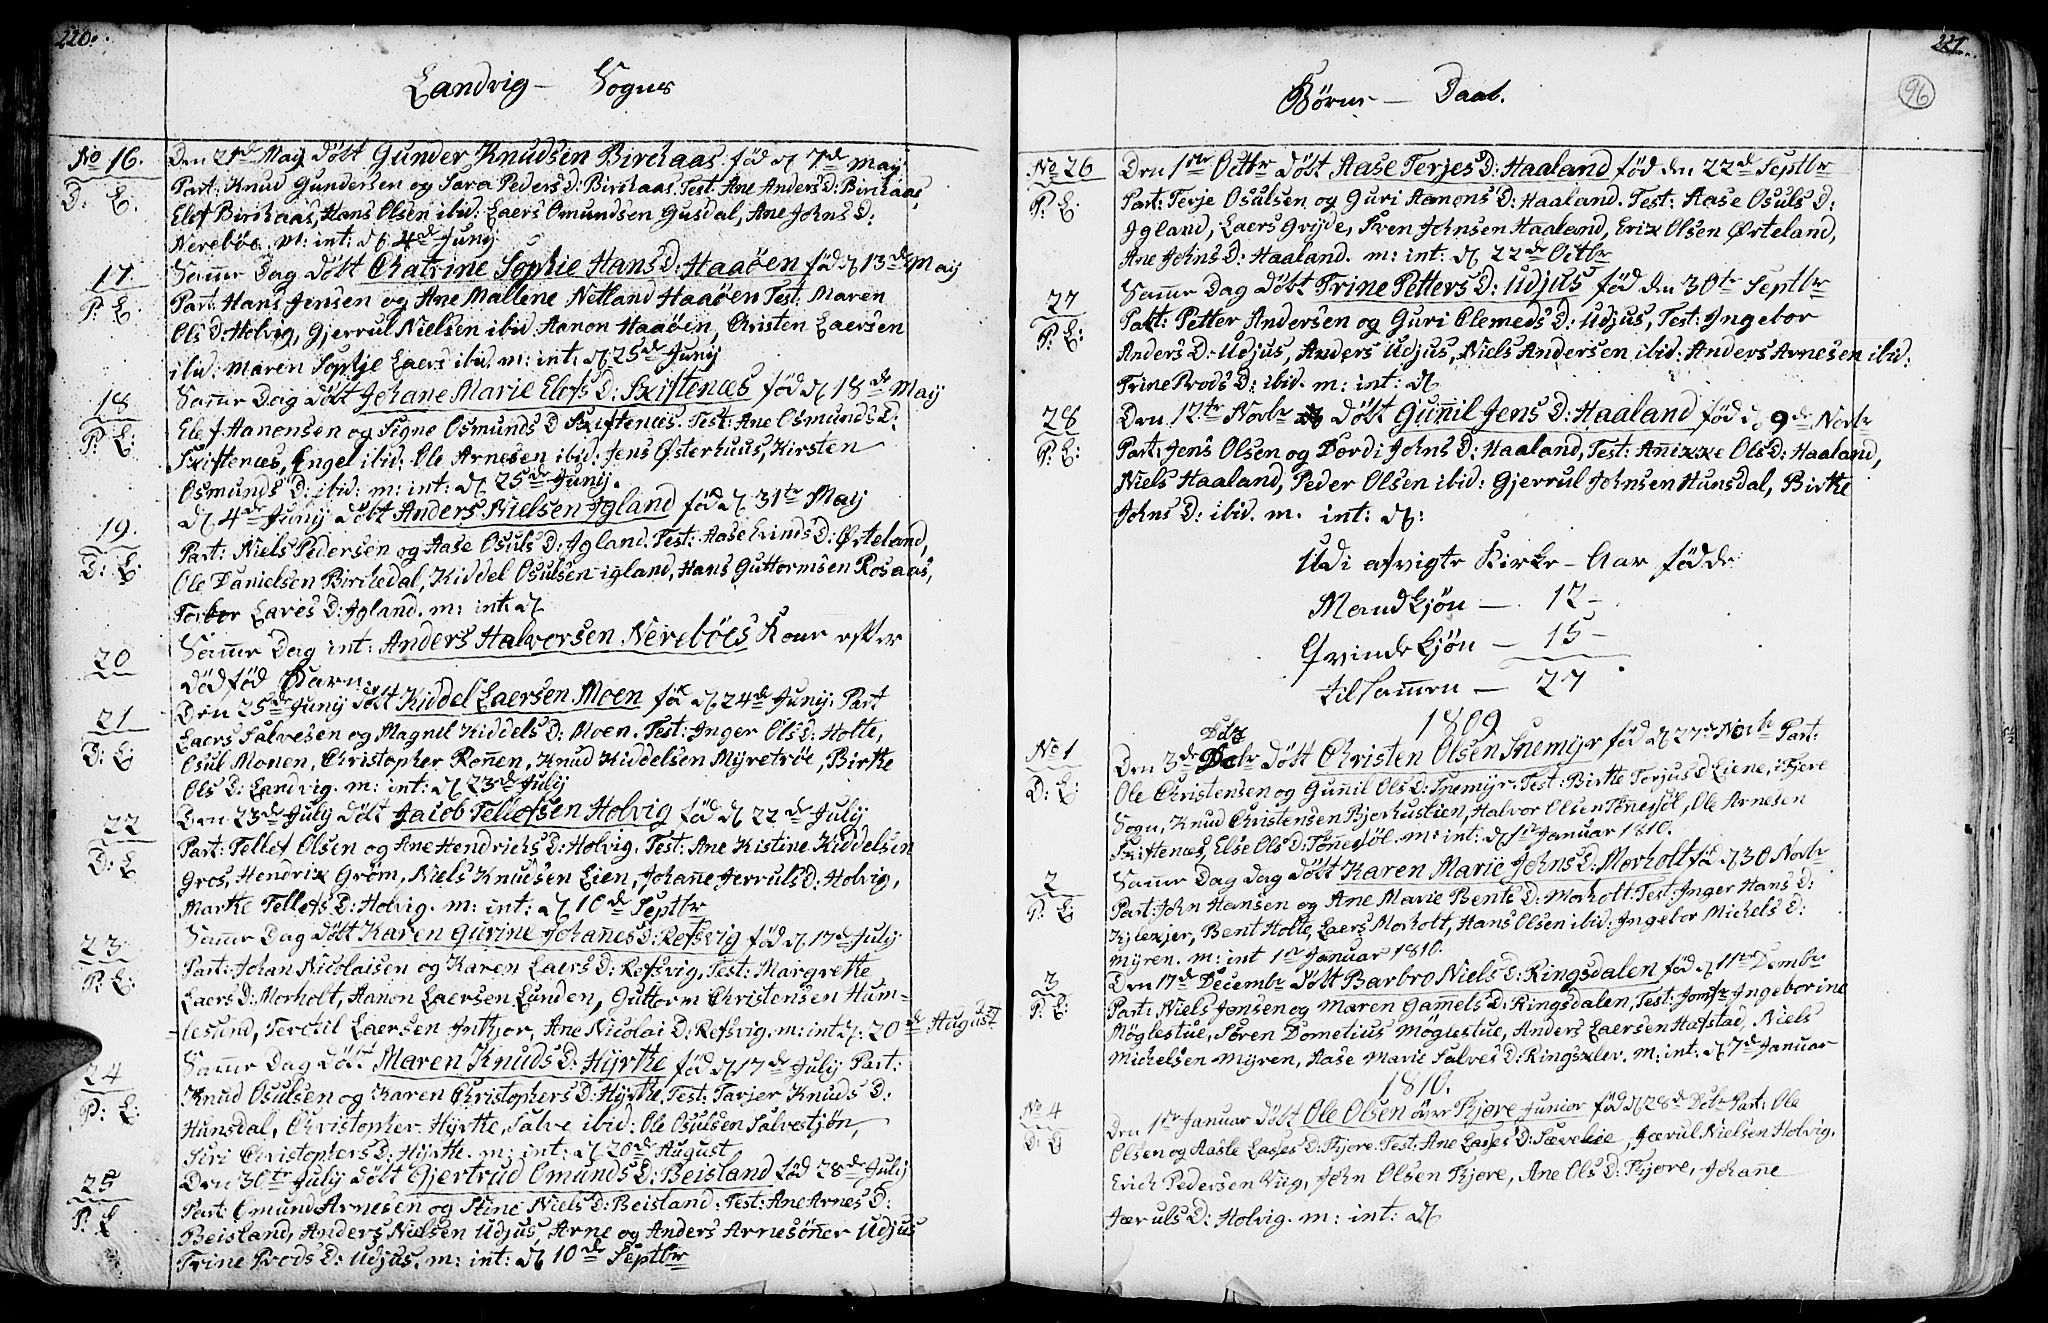 220.
Landvig – Sogns
No 16. Den 21de May døbt Gunder Knudsen Birchaas. fød d. 7de May
D: E. Part: Knud Gundersen og Sara Peders D: Birchaas. Test: Ane Anders D: Birchaas,
Elef Birchaas, Hans Olsen ibid: Laers Omundsen Gusdal, Ane Johns D:
Nerebøe. m: int: d. 4de Juny
17. Samme Dag døbt Chatrine Sophie Hans D: Haaøen fød d. 13de May
P: E: Part: Hans Jensen og Ane Mallene Netland Haaøen Test: Maren
Ols D: Holvig, Gjerrul Nielsen ibid. Aanon Haaøen, Christen Laersen
ibid: Maren Sophje Laers ibid. m: int: d. 25de Juny
18 Samme Dag døbt Johane Marie Elefs D: Skiftenæs fød d. 18de May
P: E: Elef Aanonsen og Signe Osmunds D Skiftenæs. Test: Ane Osmunds D:
Skiftenæs, Engel ibid: Ole Arnesen ibid: Jens Østerhuus, Kirsten
Osmunds D: ibid: m: int: d. 25de Juny.
19. d. 4de Juny døbt Anders Nielsen Igland fød d. 31te May
D: E: Part: Niels Pedersen og Aase Osuls D: Igland. Test: Aase Evinds D: Ørteland,
Ole Danielsen Birchedal, Kiddel Osulsen igland, Hans Guttormsen Rosaas,
Torbor Lares D: Igland. m: int: d.
20 Samme Dag int: Anders Halvorsen Nerebøes Kone efter
dødfød Barn.
21 Den 25de Juny døbt Kiddel Laersen Moen fød d. 24de Juny. Part
D: E: Laers Salvesen og Magnil Kiddels D: Moen. Test: Inger Ols D: Holte,
Osul Monen, Christopher Rønen, Knud Kiddelsen Myretrøe, Birthe
Ols D: Landvig. m: int: d. 23de July
22 Den 23de July døbt Jacob Tellefsen Holvig fød d. 22de July
D: E Part: Tellef Olsen og Ane Hendrichs D: Holvig. Test: Ane Kistine Kiddelsen
Gros, Hendrix Grøm, Niels Knudsen Eien, Johane Jerruls D: Holvig,
Marthe Tellefs D: Holvig. m: int: d. 10de Septbr
23 Samme Dag døbt Karen Gurine Johanes D: Refsvig fød d. 17de July
P: E: Part: Johan Nicolaisen og Karen Laers D: Refsvig, Test: Margrethe
Laers D: Morholt, Aanon Laersen Lunden, Guttorm Christensen Hum-
lesund, Terchil Laersen Inthjor, Ane Nicolai D: Refsvig. m: int: d. 20de August
24 Samme Dag døbt Maren Knuds D: Hyrthe fød d. 17de July Part:
P: E: Knud Osulsen og Karen Christophers D: Hyrthe, Test: Tarjer Knuds D:
Hunsdal, Christopher Hyrthe, Salve ibid: Ole Osulsen Salvestjøn,
Siri Christophers D: Hyrthe. m: int: d. 20de August
25 Den 30te July døbt Gjertrud Omunds D: Beisland fød 28de July
P: E Part: Omund Arnesen og Stine Niels D: Beisland: Test: Ane Arnes D:
Beisland, Anders Nielsen Udjus, Arne og Anders Arnesøner Udjus
Trine Prods D: Udjus. m: int: d. 10de Septbr
221.
96
Børns – Daab.
No 26 Den 1ste Octbr døbt Aase Terjes D: Haaland fød den 22de Septbr
P: E. Part: Terje Osulsen og Guri Aanons D: Haaland. Test: Aase Osuls D:
Igland, Laers Grijde, Sven Johnsen Haaland, Erix Olsen Ørteland,
Ane Johns D: Haaland. m: int: d. 22de Octbr
27 Samme Dag døbt Trine Petters D: Udjus fød den 30te Septbr
P: E: Part: Petter Andersen og Guri Clemeds D: Udjus, Test: Ingebor
Anders D: Udjus, Anders Udjus, Niels Andersen ibid: Anders Arnesen ibid:
Trine Prods D: ibid. m: int: d.
28 Den 12te Novbr døbt Gunil Jens D: Haaland fød d. 9de Novbr
P: E: Part: Jens Olsen og Dordi Johns D: Haaland, Test: Anixke Ols D: Haaland,
Niels Haaland, Peder Olsen ibid: Gjerrul Johnsen Hunsdal, Birthe
Johns D: ibid. m. int: d:
Udi afvigte Kirke-Aar fødde
Mandkjøn – 12 –
Qvindekjøn – 15 –
tilsamen – 27
1809
No 1 Den 3de Decbr døbt Christen Olsen Snemyr fød d. 27de Novbr Part:
D: E: Ole Christensen og Gunil Ols D: Snemyr. Test: Birthe Torjus D Liene, i Fjere
Sogn, Knud Christensen Bjorhustien, Halvor Olsen Tønesøl, Ole Arnesen
Skiftenæs, Else Ols D: Tønesøl. m: int: d. 1ste Januar 1810.
2 Samme Dag dag døbt Karen Marie Johns D: Morholt fød d. 30 Novbr
P: E Part: John Hansen og Ane Marie Bents D: Morholt. Test: Inger Hans D:
Kjlexjer, Bent Holte, Laers Morholt, Hans Olsen ibid: Ingebor Michels D:
Myren. m: int 1ste Januar 1810.
3 Den 17de Decembr døbt Barbro Niels D: Ringsdalen fød d. 11te Dcembr
P: E: Part: Niels Jensen og Maren Gamels D: Ringsdalen, Test: Jomfr Ingeborine
Møglestue, Søren Dometius Møglestue, Anders Laersen Hafstad, Niels
Michelsen Myren, Aase Marie Salves D: Ringsxlev. m: int: d. 7de Januar
1810.
No 4 Den 1ste Januar døbt Ole Olsen øvre Fjore junior fød d. 28de Dcbr Part: Ole
D: E Olsen og Aaste Lases D: Fjore. Test: Ane Lases D: Sævelie, Jærul Nielsen Holvig.
Erich Pedersen Viig, John Olsen Fjore, Ane Ols D: Fjore, Johane
Jæruls D: Holvig. m: int: d.